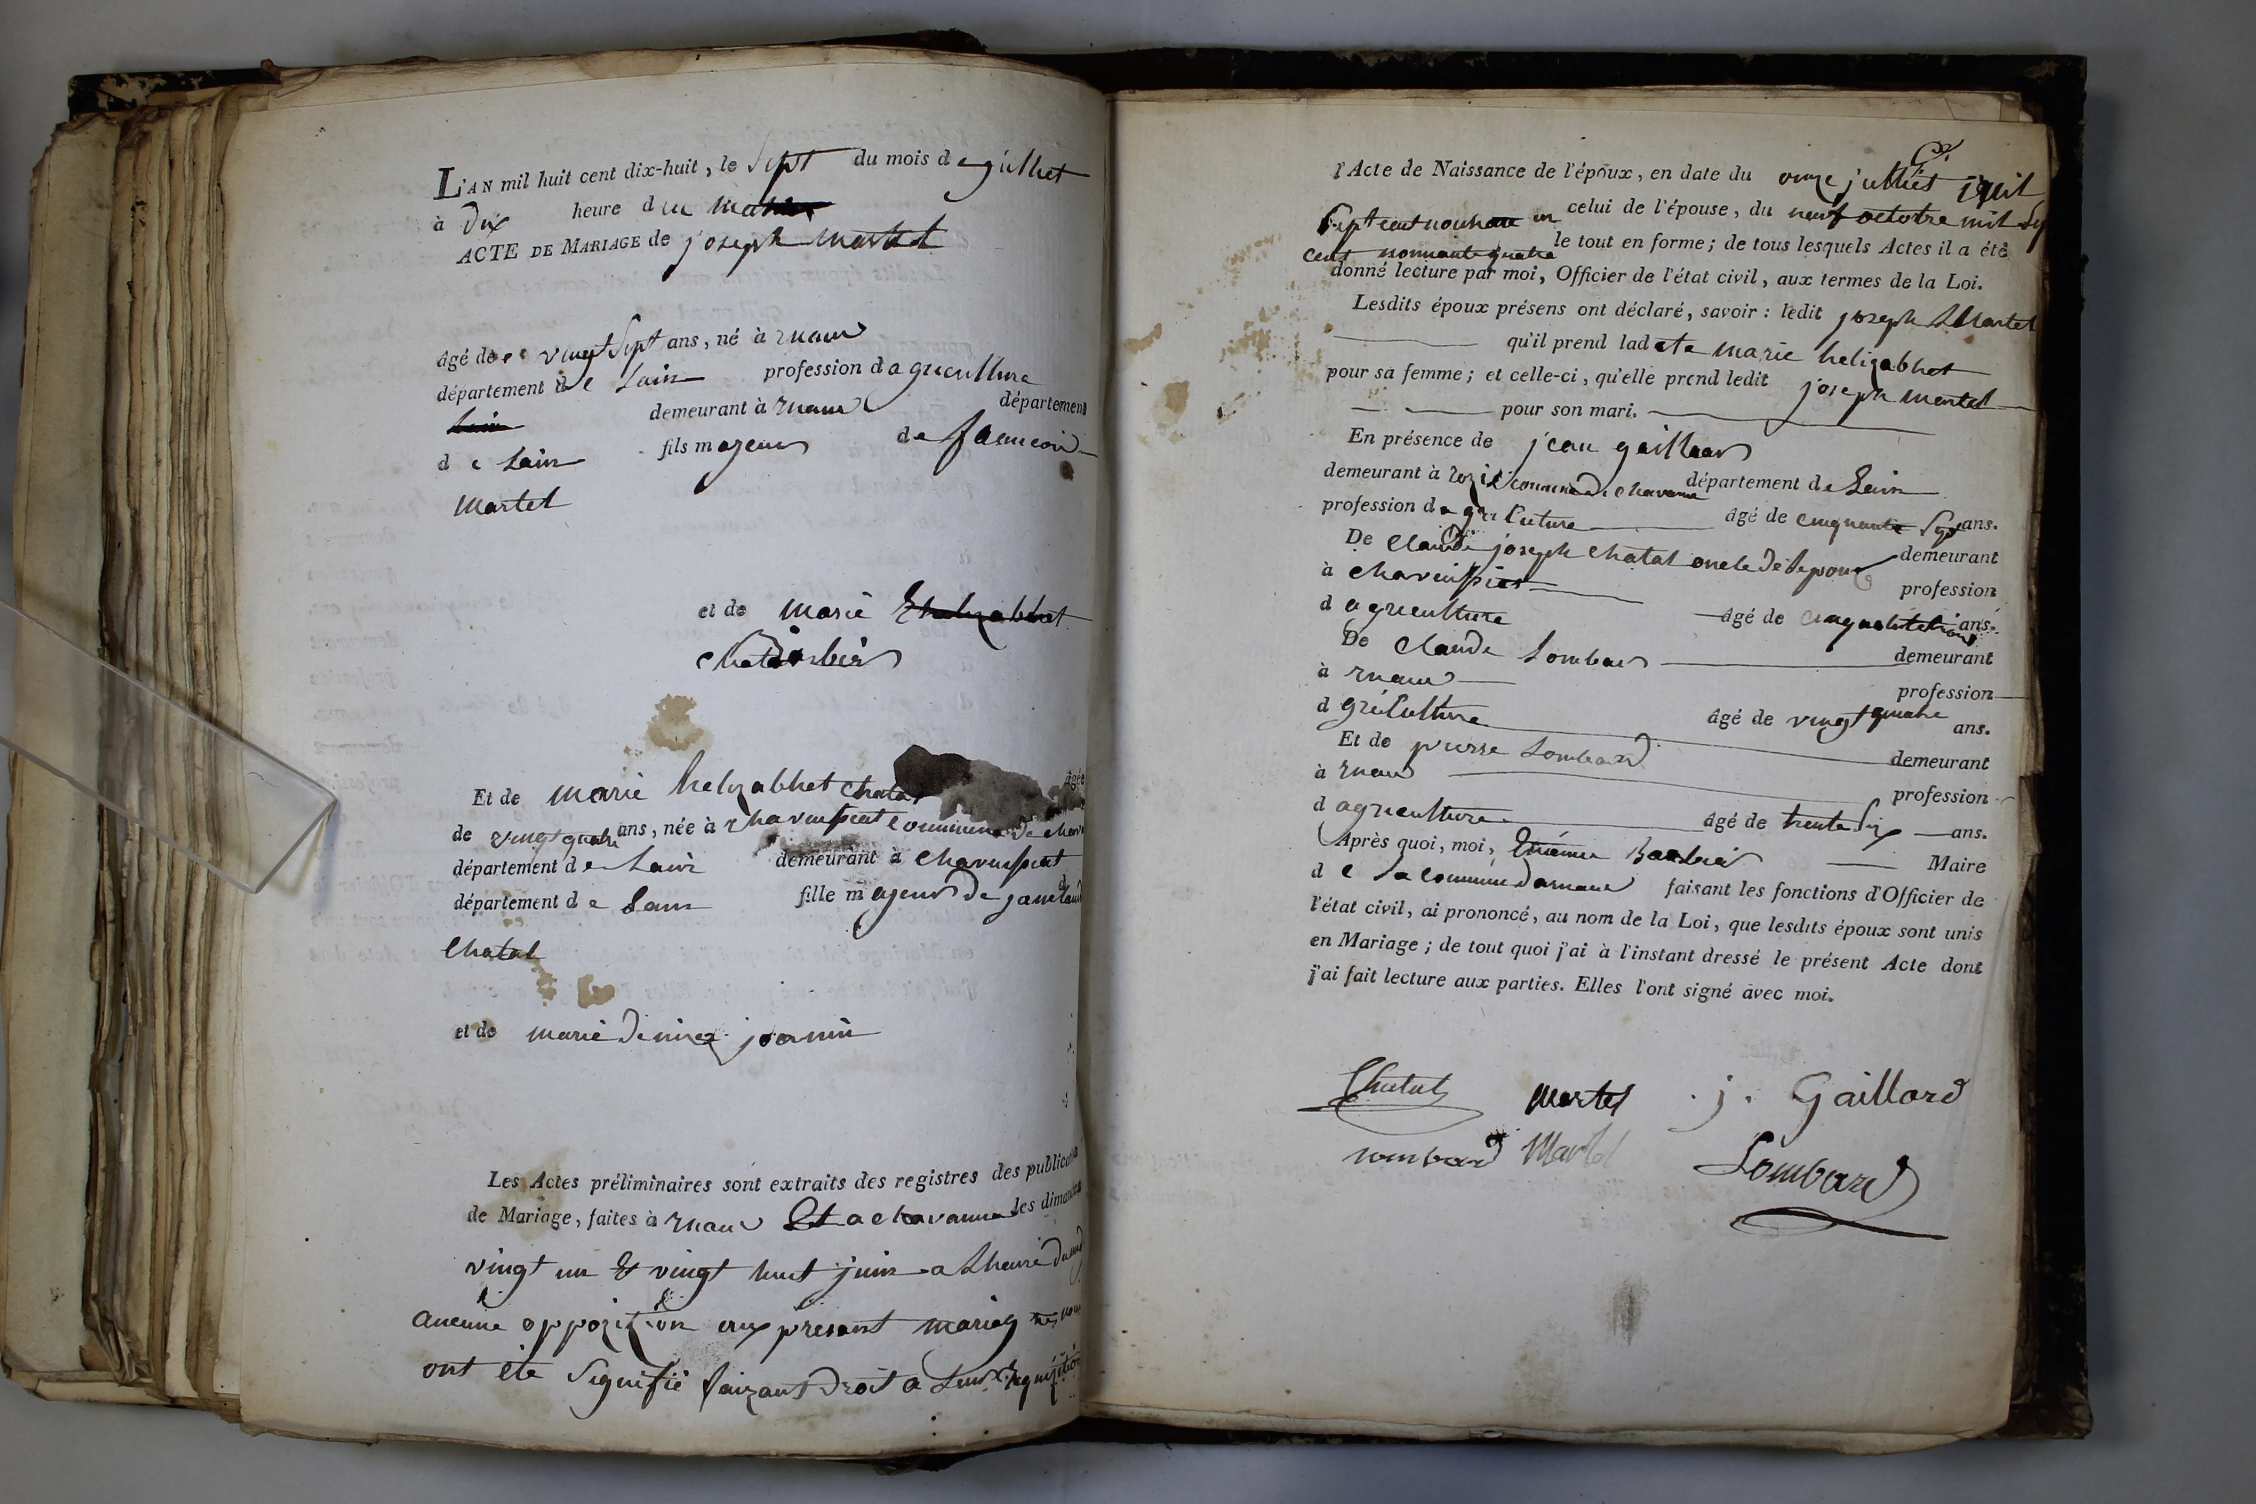 L'AN mil huit cent dix-huit, le Sept du mois de juillet
à dix heure du matin
ACTE DE MARIAGE de joseph martel
âgé de vingt Sept ans, né à rnau
département de Lain profession d agriculture
demeurant à rnau département
de Lain fils majeur de francoi
Martel
et de marie
Barbier
Et de marie helizabhet Chatal âgée
de vingt quatre ans, née à Charinpiat Commune de Chava
département de Lain demeurant à Charinpiat
département de Lain fille majeur de janclaud
Chatal
et de marie denize joanin
Les Actes préliminaires sont extraits des registres des publica
de Mariage, faites à rnau Et a chavanne les diman
vingt un & vingt huit juin a Lheure du
aucune oppozition aux présant mariag ne nou
ont éte Signifié faizant droit a Leur Requizition
l'Acte de Naissance de l'époux, en date du onze juilliet mil
Sept cent nonante un celui de l'épouse, du neuf octobre mil Sep
cent nonnante quatre le tout en forme; de tous lesquels Actes il a été
donné lecture par moi, Officier de l'état civil, aux termes de la Loi.
Lesdits époux présens ont déclaré, savoir: ledit joseph Martel
qu'il prend ladete marie helizabhet
pour sa femme; et celle-ci, qu'elle prend ledit joseph martel
pour son mari.
En présence de jean gaillar
demeurant à commune de Chavanne département de Lain
profession d agriculture âgé de cinquante Sept ans.
De Claude joseph Chatal oncle de lepouz demeurant
à Charinpiat profession
d agriculture âgé de cinquantetrois ans.
De Claude Lombar demeurant
à rnau profession
d griculture âgé de vingt quatre ans.
Et de pierre Lombard demeurant
à rnau profession
d agriculture âgé de trente Six ans.
Après quoi, moi, Etiénne Barbier Maire
de La Commune darnau faisant les fonctions d'Officier de
l'état civil, ai prononcé, au nom de la Loi, que lesdits époux sont unis
en Mariage; de tout quoi j'ai à l'instant dressé le présent Acte dont
j'ai fait lecture aux parties. Elles l'ont signé avec moi.
Chatal martel j. Gaillard
Lombard Martel Lombard